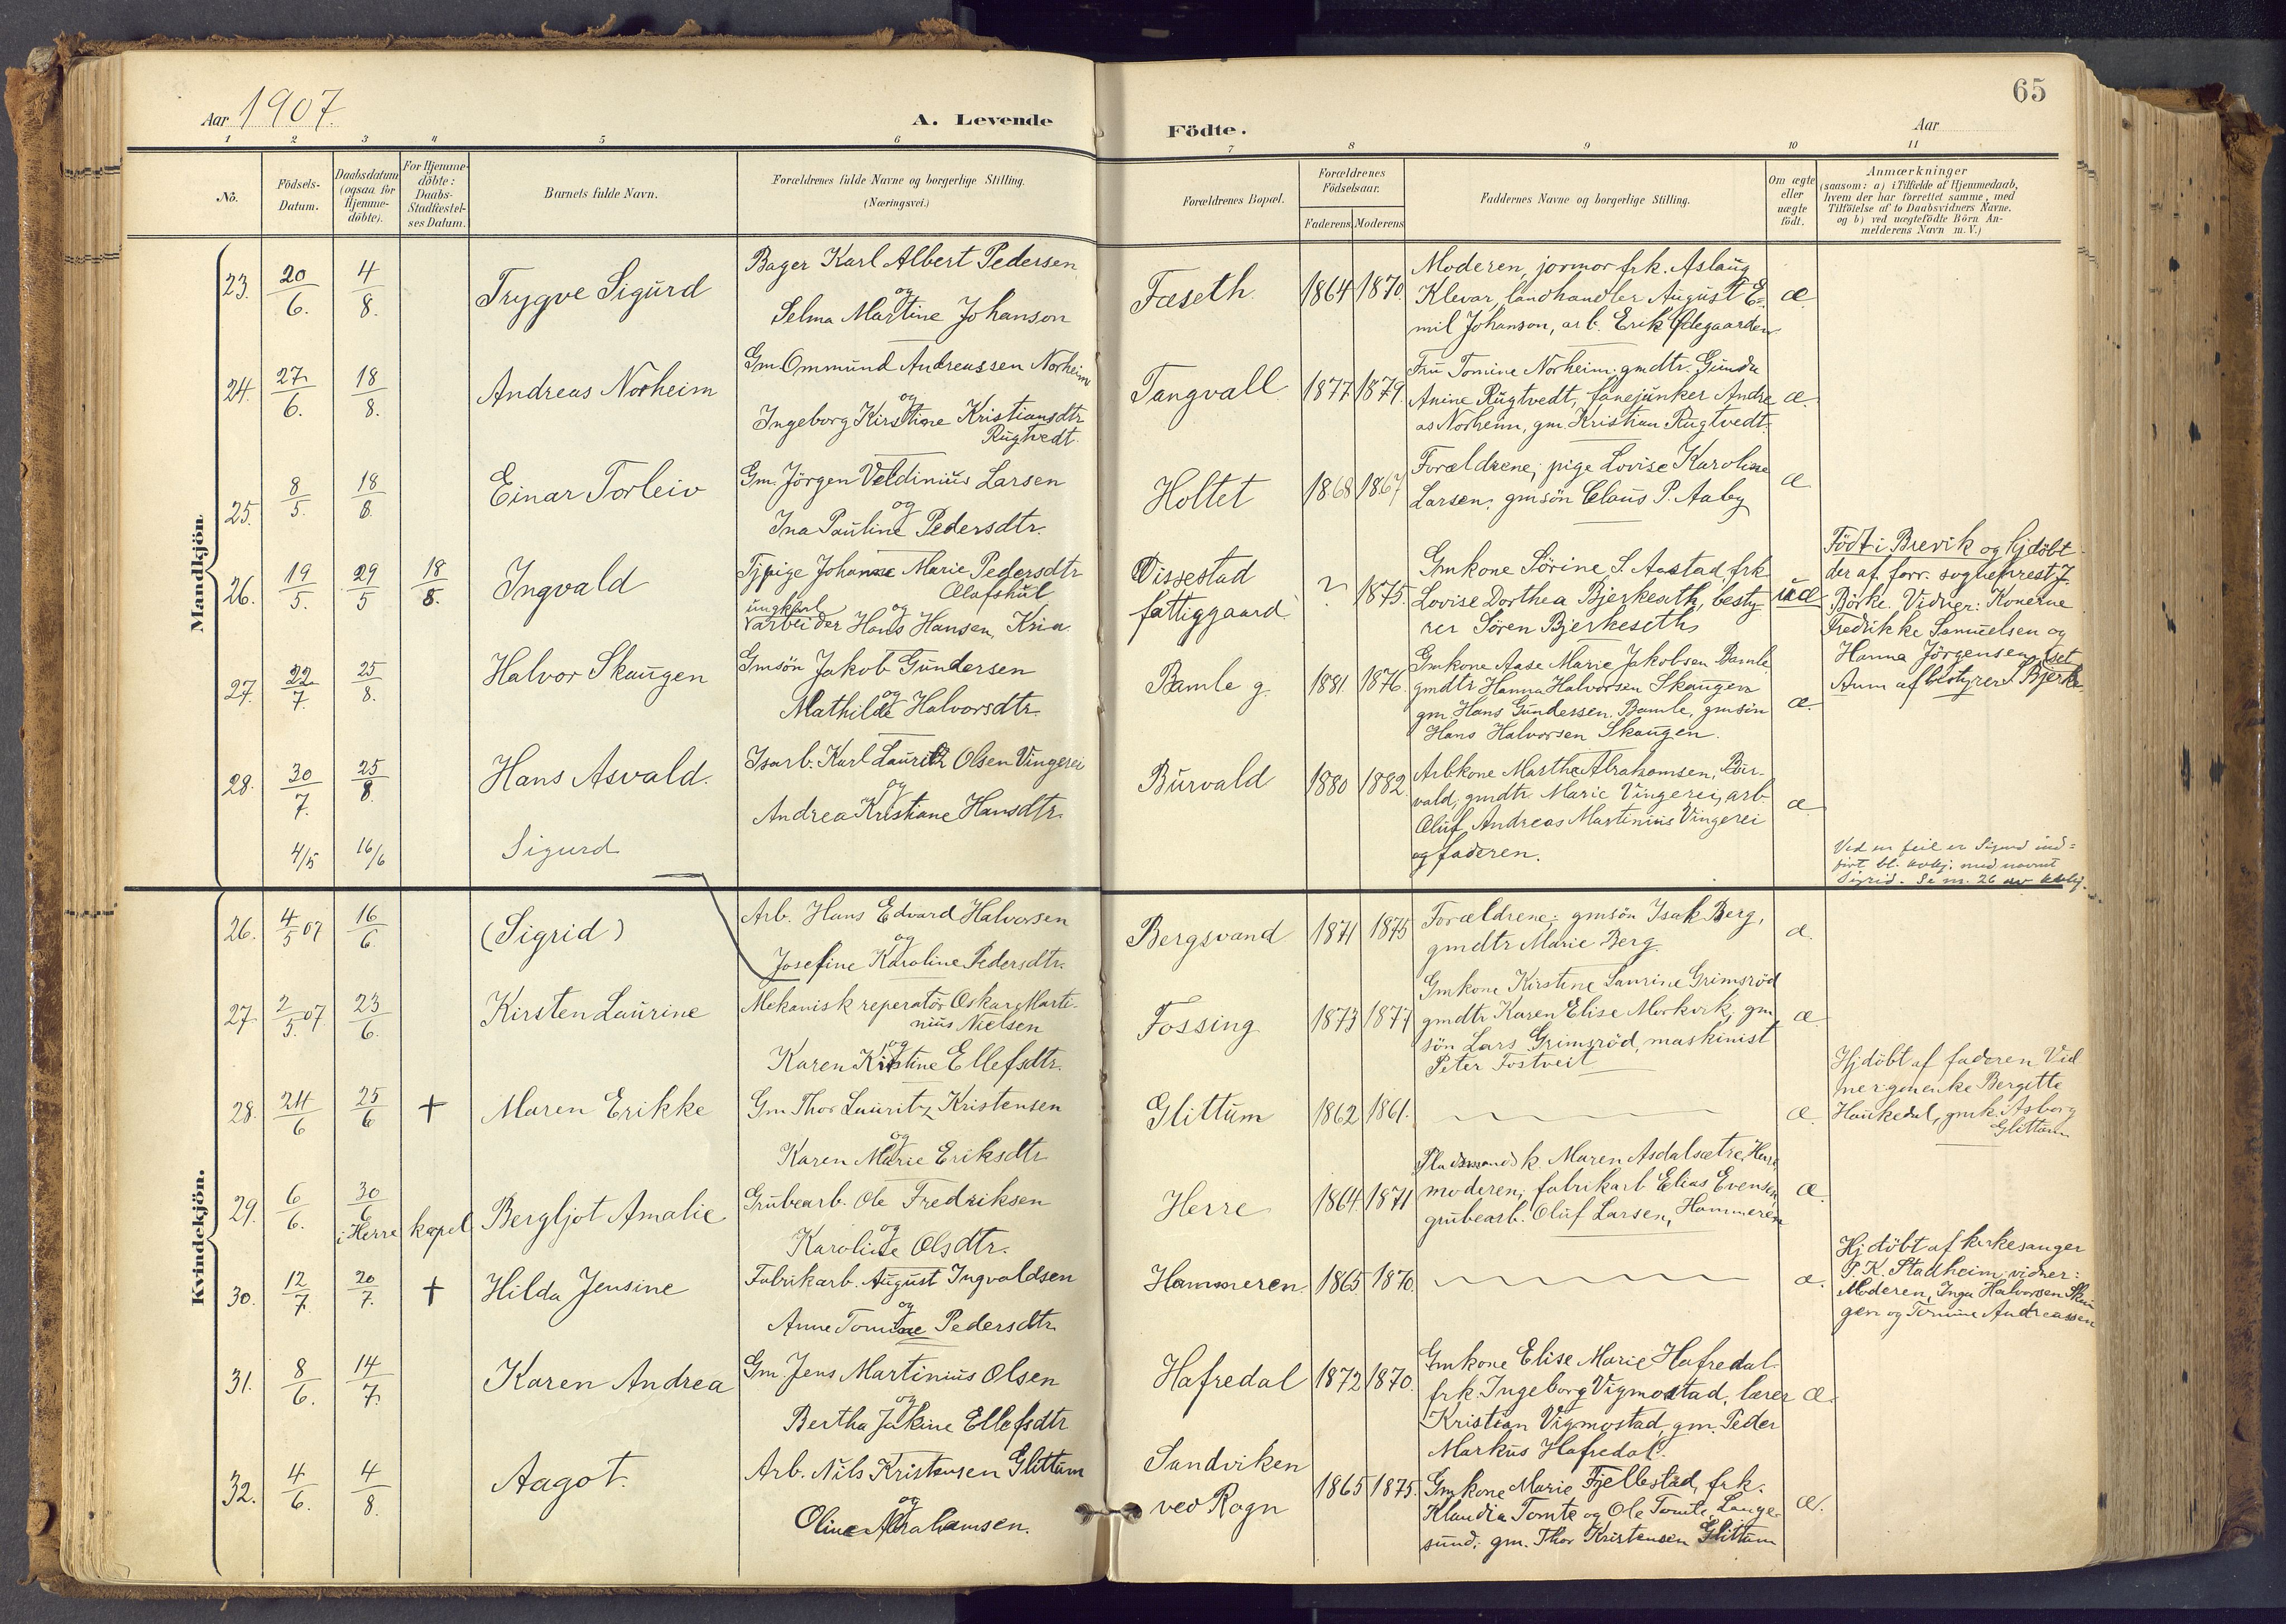 65
Aar 1907.
A. Levende
Födte.
Aar
1 2 3 4 5 6 7 8 9 10 11
No.
Födsels-
Datum.
Daabsdatum
(ogsaa for
Hjemme-
döbte).
For Hjemme-
döbte:
Daabs-
Stadfæstel-
ses Datum.
Barnets fulde Navn.
Forældrenes fulde Navne og borgerlige Stilling.
(Næringsvei.)
Forældrenes Bopæl.
Forældrenes
Födselsaar.
Faderens Moderens
Faddernes Navne og borgerlige Stilling.
Om ægte
eller
uægte
födt.
Anmærkninger
(saasom: a) i Tilfælde af Hjemmedaab,
hvem der har forrettet samme, med
Tilföielse af to Daabsvidners Navne.
og b) ved uægtefödte Börn An-
melderens Navn m. V.)
Mandkjön.
23. 20/6. 4/8. Trygve Sigurd
Bager Karl Albert Pedersen
og
Selma Martine Johanson
Fæseth 1864 1870.
Moderen, jormor frk. Aslaug
Klevar, landhandler August E-
mil Johanson, arb. Erik Ødegaarden
æ.
24. 27/6. 18/8. Andreas Norheim
Gm Ommund Andreassen Norheim
og
Ingeborg Kirstine Kristiansdtr
Rugtvedt.
Tangvall 1877. 1879.
Fru Tomine Norheim. gmdtr. Gunda
Anine Rugtvedt, fanejunker Andre
as Norheim, gm. Kristian Rugtvedt.
æ.
25. 8/5. 18/8. Einar Torleiv
Gm. Jörgen Veldinius Larsen
og
Ina Pauline Pedersdtr.
Holtet 1868 1867
Forældrene; pige Lovise Karoline
Larsen; gmsön Claus P. Aaby
æ
26. 19/5. 29/5 18/8. Ingvald
Tjpige Johanne Marie Pedersdtr
Olafshul
ungkarl og
arbeider Hans Hansen, Kria.
Vissestad
fattiggaard.
? 1875.
Gmkone Sörine S. Aastad, frk.
Lovise Dorthea Bjerkeseth, besty
rer Sören Bjerkeseth
uæ
Födt i Brevik og hjdöbt
der af forr. sogneprest J.
Börke. Vidner: Konerne
Fredrikke Samuelsen og
Hanna Jörgensen.
Anm af bestyrer S. Bjerke
27. 22/7. 25/8. Halvor Skaugen
Gmsön Jakob Gundersen
og
Mathilde Halvorsdtr.
Bamle g. 1881. 1876.
Gmkone Aase Marie Jakobsen Bamle
gmdtr Hanna Halvorsen Skaugen
gm Hans Gundersen Bamle, gmsön
Hans Halvorsen Skaugen.
æ.
28. 30/7. 25/8. Hans Asvald.
Isarb. Karl Lauritz Olsen Vingerei
og
Andrea Kristiane Hansdtr.
Burvald 1880 1882.
Arbkone Marthe Abrahamsen, Bur-
vald, gmdtr. Marie Vingerei, arb
Oluf Andreas Martinius Vingerei
og faderen.
æ
4/5 16/6 Sigurd
Ved en feil er Sigurd ind=
fört bl. kvkj. med navnet
Sigrid. Se nr. 26 av kvkj.
Kvindekjön.
26. 4/5 07 16/6. (Sigrid)
Arb. Hans Edvard Halvorsen
og
Josefine Karoline Pedersdtr.
Bergsvand 1871 1875
Forældrene; gmsön Isak Berg,
gmdtr Marie Berg.
æ.
27. 2/5. 07. 23/6. Kirsten Laurine
Mekanisk reperatör Oskar Marti-
nius Nielsen
og
Karen Kirstine Ellefsdtr.
Fossing 1873 1877
Gmkone Kirstine Laurine Grimsröd
gmdtr Karen Elise Morkerk, gm
sön Lars Grimsröd, maskinist
Peter Tostveit
æ
28. 24/6 25/6 + Maren Erikke
Gm Thor Lauritz Kristensen
og
Karen Marie Eriksdtr
Glittum 1862 1861.
æ.
Hjdöbt af faderen Vid
ner: gmenke Bergitte
Haukedal, gmk. Asborg
Glittum
29. 6/6. 30/6 i Herre kapel Bergljot Amalie
Grubearb. Ole Fredriksen
og
Karoline Olsdtr.
Herre 1864. 1871
Pladsmands k. Maren Asdalsætre, Herre
moderen; fabrikarb Elias Evensen
grubearb. Oluf Larsen, Hammeren
æ.
30. 12/7. 20/7. + Hilda Jensine
Fabrikarb. August Ingvaldsen
og
Anne Tomine Pedersdtr
Hammeren 1865 1870.
æ.
Hjdöbt af kirkesanger
P. K. Stadheim; vidner:
Moderen, Inga Halvorsen Skau
gen og Tomine Andreassen
31. 8/6. 14/7. Karen Andrea
Gm. Jens Martinius Olsen
og
Bertha Jakine Ellefsdtr
Hafredal 1872 1870.
Gmkone Elise Marie Hafredal.
frk. Ingeborg Vigmostad, lærer
Kristian Vigmostad, gm. Peder
Markus Hafredal.
æ.
32. 4/6. 4/8. Aagot.
Arb. Nils Kristensen Glittum
og
Oline Abrahamsen.
Sandviken
ved Rogn
1865 1875.
Gmkone Marie Fjellestad, frk.
Klaudia Tomte og Ole Tomte, Lange-
sund; gm. Thor Kristensen Glittum
æ.